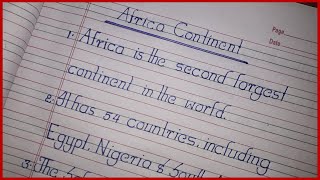 Page
Date
Africa Continent
1. Africa is the second largest
continent in the world.
2. It has 54 countries, including
Egypt, Nigeria &
3. The